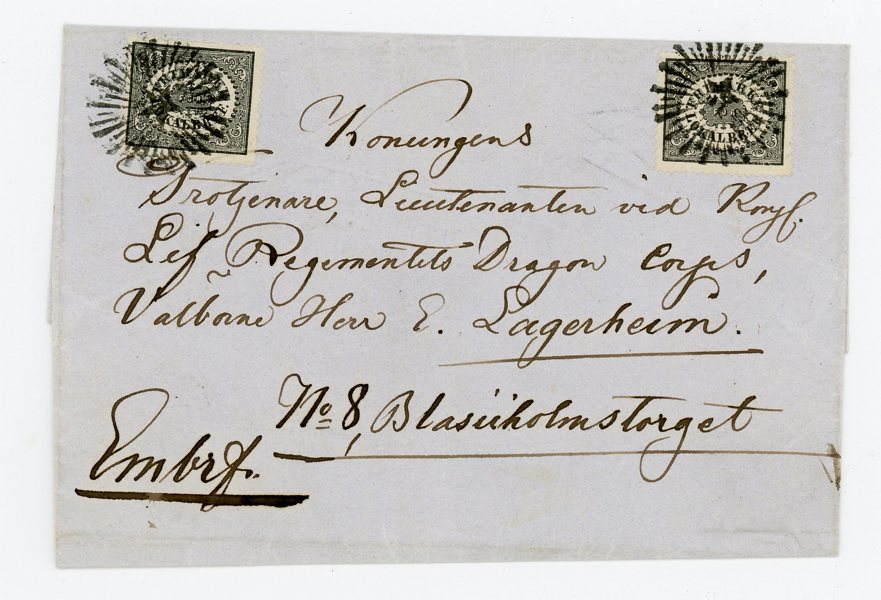 Konungens
Trotjenare, Lieutenanten vid Kongl.
Lif Regementets Dragon Corps,
Välborne Herr E. Lagerheim.
No 8, Blasiiholmstorget
Embrf.
LOKALBREF